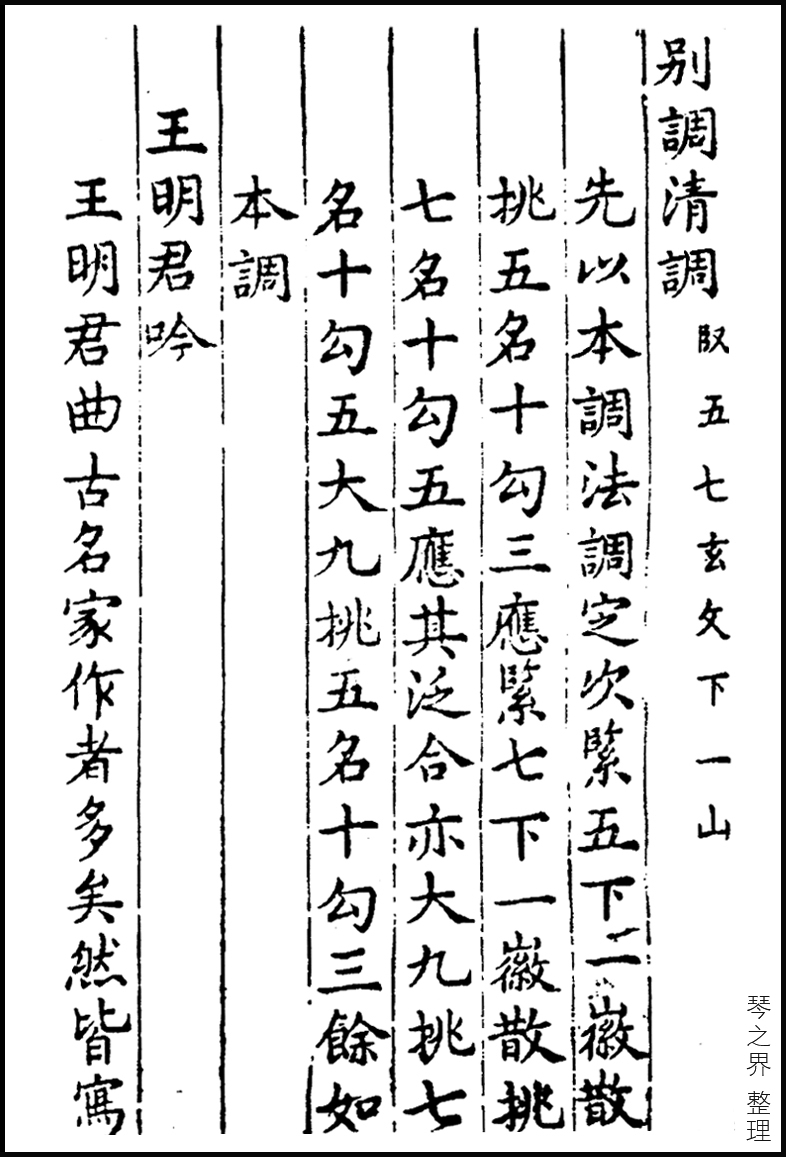 别調清調 臤五七玄攵下一山
先以本調法調定次緊五下一徽散
挑五名十勾三應緊七下一徽散挑
七名十勾五應其泛合亦大九挑七
名十勾五大九挑五名十勾三餘如
本調
王明君吟
王明君曲古名家作者多矣然皆寫
琴之界 整理